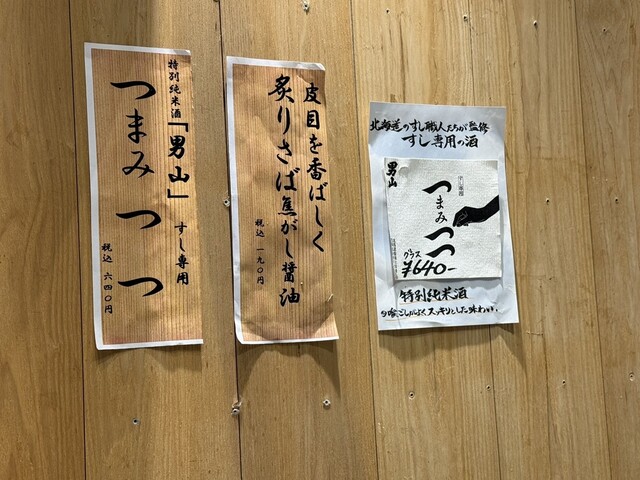 特別純米酒「男山」すし専用
つまみつつ
税込 六四〇円
皮目を香ばしく
炙りさば焦がし醤油
税込 一九〇円
北海道のすし職人たちが監修
すし専用の酒
男山
つまみつつ
グラス
¥640-
特別純米酒
スッキリとした味わい。